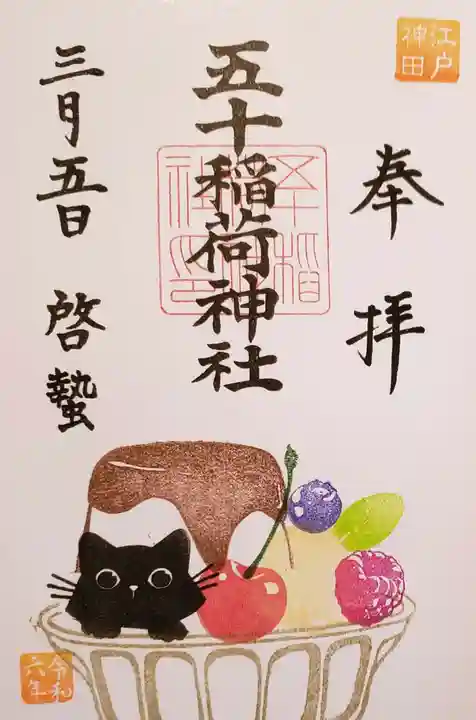 江戸
神田
奉拝
五十稲荷神社
三月五日 啓蟄
令和
六年